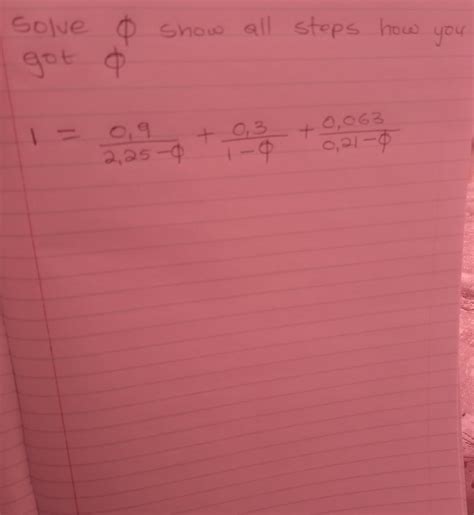 Solve ϕ show all steps how you
got ϕ
1 = 0,9/2,25-ϕ + 0,3/1-ϕ + 0,063/0,21-ϕ